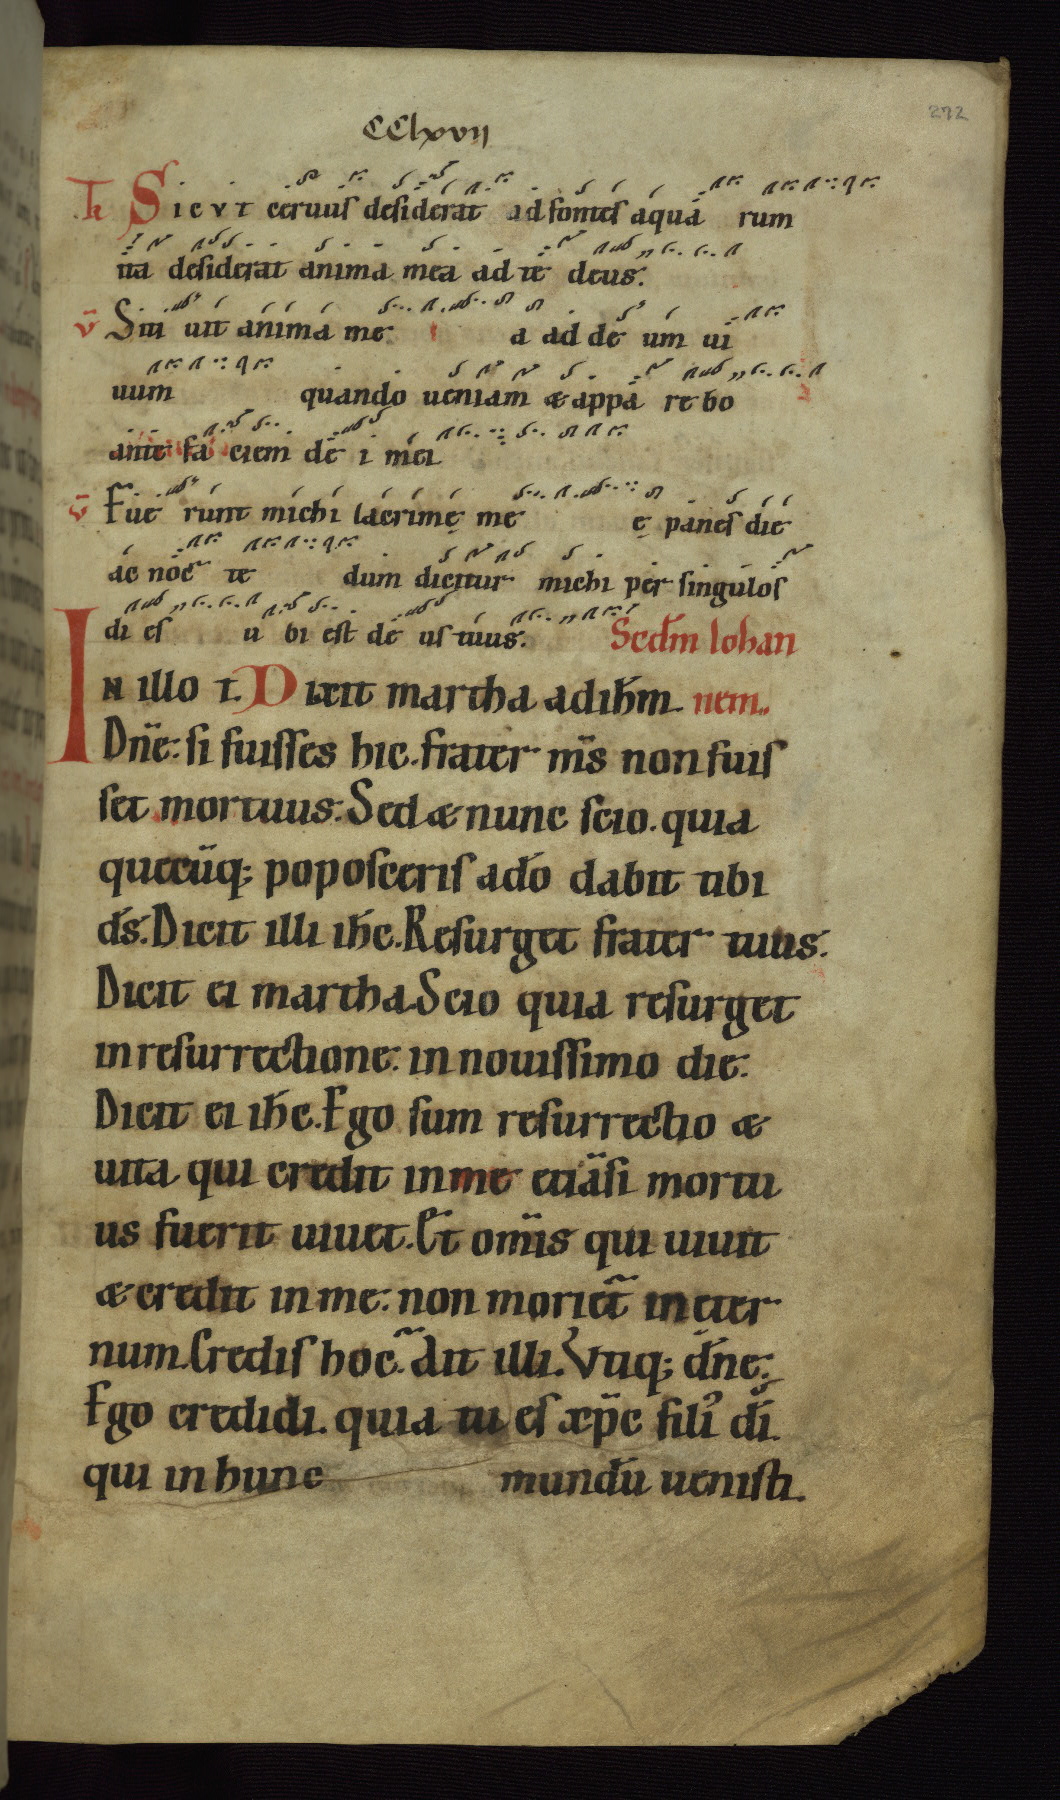 CClxvii
272
Tr Sicvt ceruus desiderat ad fontes aqua rum
ita desiderat anima mea ad te deus.
v̄ Siti uit anima me a ad de um ui
uum quando ueniam & appa re bo
ante fa ciem de i mei
v̄ Fue runt michi lacrime me ę panes die
ac noc te dum dicitur michi per singulos
di es u bi est de us tuus. Scdm Iohan
In illo t. Dixit martha ad ihm. nem.
Dn̄e: si fuisses hic. frater ms̄ non fuis
set mortuus: Sed & nunc scio. quia
quecūq; poposceris a do dabit tibi
ds. Dicit illi ihc. Resurget frater tuus.
Dicit ei martha. Scio quia resurget
in resurrectione: in nouissimo die.
Dicit ei ihc. Ego sum resurrectio &
uita qui credit in me etiāsi mortu
us fuerit uiuet. Et omīs qui uiuit
& credit in me: non moriet̄ in eter
num. Credis hoc. Ait illi. Vtiq; dn̄e:
Ego credidi. quia tu es xp̄c fili' di.
qui in hunc mundū uenisti.